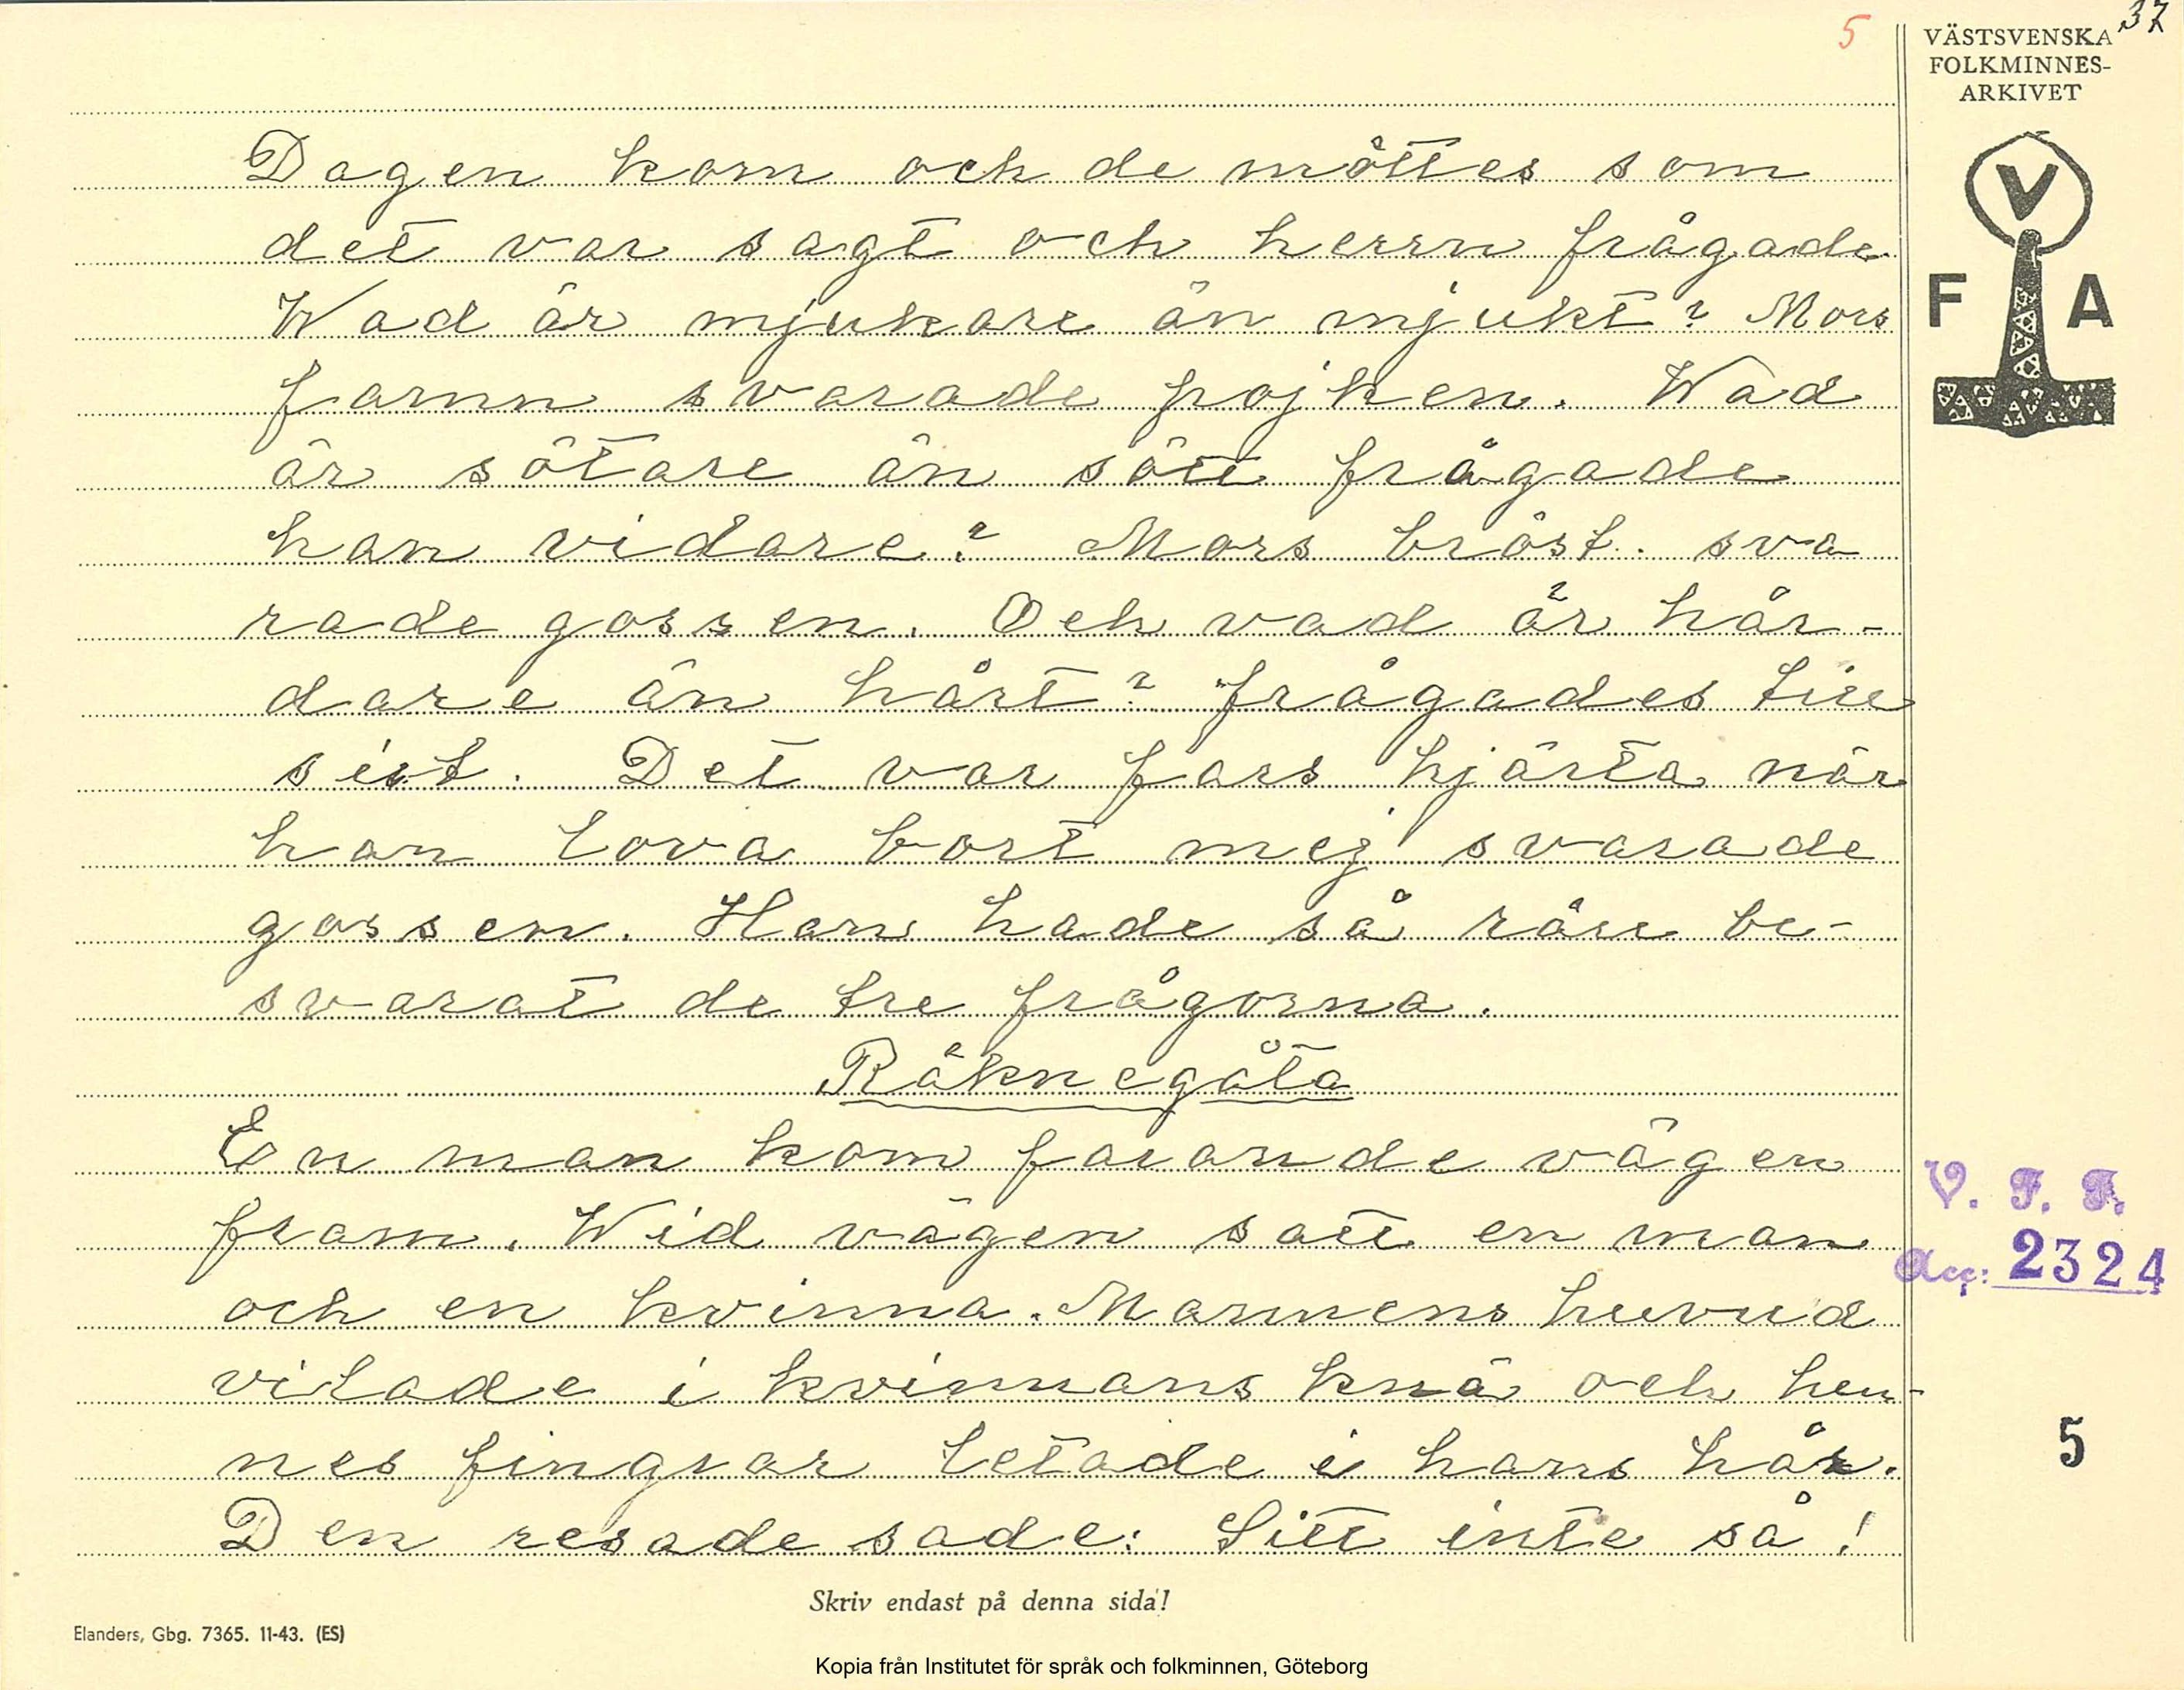 5
37
VÄSTSVENSKA
FOLKMINNES-
ARKIVET
V
F A
Dagen kom och de möttes som
det var sagt och herrn frågade
Wad är mjukare än mjukt? Mors
famn svarade pojken. Wad
är sötare än sött frågade
han vidare? Mors bröst. sva
rade gossen. Och vad är hår-
dare än hårt? frågades till
sist. Det var fars hjärta när
han lova bort mej svarade
gossen. Han hade så rätt be-
svarat de tre frågorna.
Räknegåta
En man kom farande vägen
fram. Wid vägen satt en man
och en kvinna. Mannens huvud
vilade i kvinnans knä och hen-
nes fingrar letade i hans hår.
Den resade sade: Sitt inte så!
V. F. F.
Acc: 2324
5
Skriv endast på denna sida!
Elanders, Gbg. 7365. 11-43. (ES)
Kopia från Institutet för språk och folkminnen, Göteborg